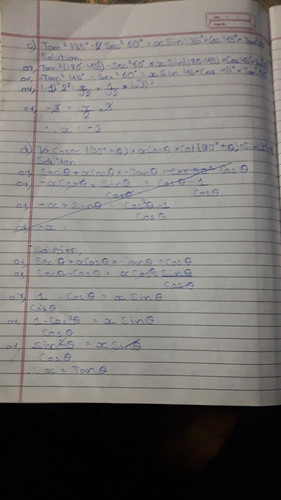 c) Tan² 135° - Sec² 60° = x Sin 135° × Cos 45° ×
Solution
or, Tan² (180-45) - Sec² 60° = x Sin (180-45) × Cos 45°
or, Tan² 45° - Sec² 60° = x Sin 45 × Cos 45°
or,
or, -3 =
∴ x = -2
d) Cosec (90°+θ) + x Cosθ × Cot (90°+θ) =
Solution
or, Secθ + x Cosθ × -Tanθ = Cosθ
or, -x Cosθ × Sinθ = Cosθ - 1
Cosθ Cosθ
or, -x × Sinθ = Cos²θ - 1
Cosθ
or, -x =
Solution,
or, Secθ + x Cosθ × -Tanθ = Cosθ
or, Secθ - Cosθ = x Cosθ × Sinθ
Cosθ
or, 1 - Cosθ = x Sinθ
Cosθ
or, 1 - Cos²θ = x Sinθ
Cosθ
or, Sin²θ = x Sinθ
Cosθ
∴ x = Tanθ